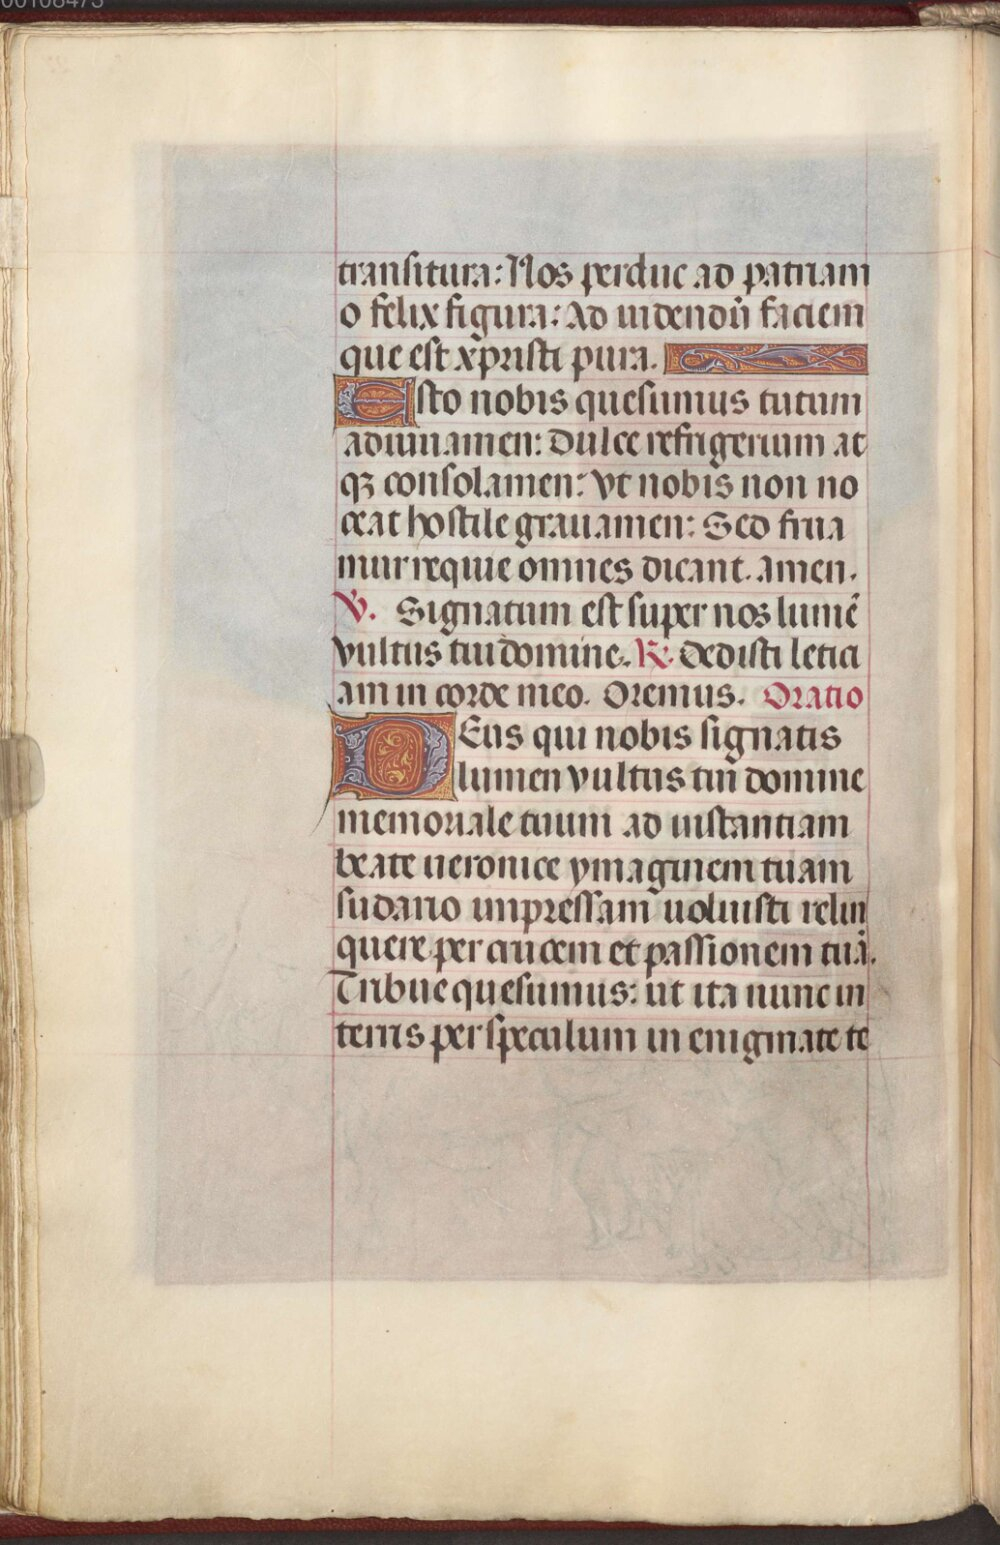 transitura: Nos perduc ad patriam
o felix figura: Ad uidendũ faciem
que est xp̃risti pura.
Esto nobis quesumus tutum
adiuuamen: Dulce refrigerium at
qꝫ consolamen: Vt nobis non no
ceat hostile grauamen: Sed frua
mur requie omnes dicant. amen.
V. Signatum est super nos lumẽ
vultus tui domine. R. dedisti leticı
am in corde meo. Oremus. Oratio
DEus qui nobis signatis
lumen vultus tui domine
memoriale tuum ad instantiam
beate ueronice ymaginem tuam
sudario impressam uoluisti relin
quere per crucem et passionem tuã.
Tribue quesumus: ut ita nunc in
terris per speculum in enigmate te